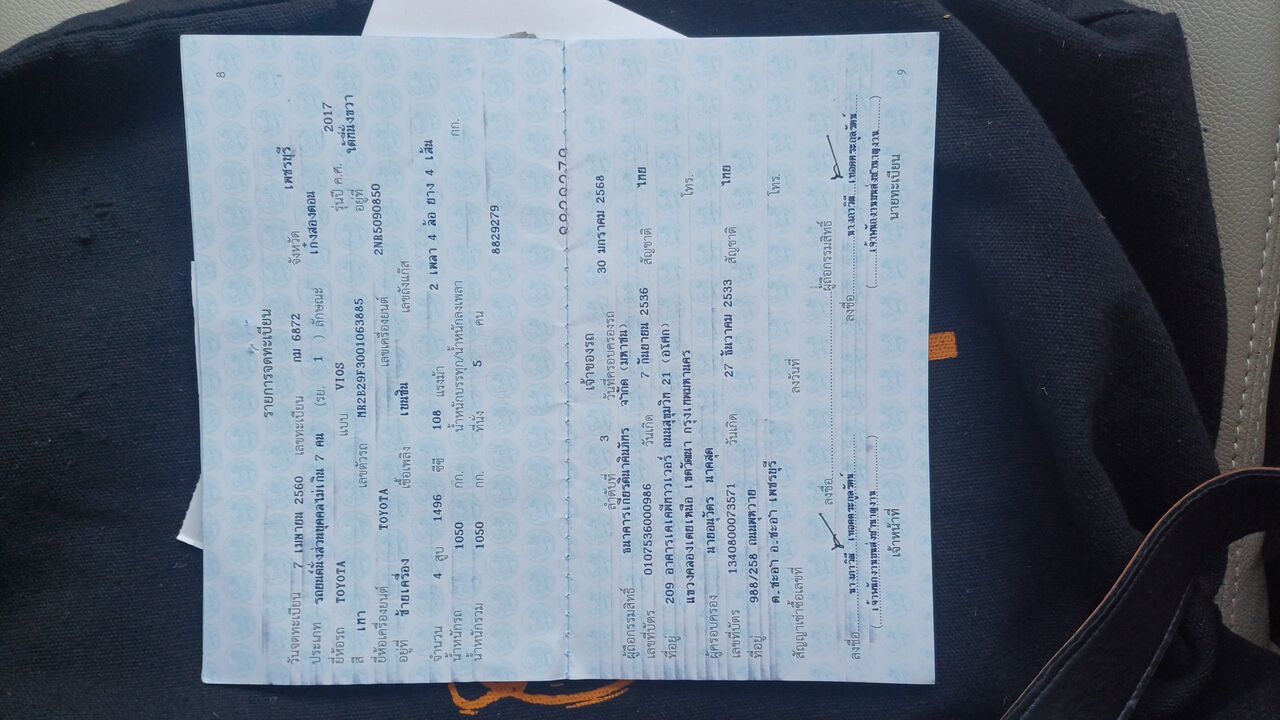 8
รายการจดทะเบียน
วันจดทะเบียน 7 เมษายน 2560 เลขทะเบียน กม 6872 จังหวัด เพชรบุรี
ประเภท รถยนต์นั่งส่วนบุคคลไม่เกิน 7 คน (รย. 1 ) ลักษณะ เก๋งสองตอน
ยี่ห้อรถ TOYOTA แบบ VIOS รุ่นปี ค.ศ. 2017
สี เทา เลขตัวรถ MR2B29F3001063885 อยู่ที่ ใต้ที่นั่งขวา
ยี่ห้อเครื่องยนต์ TOYOTA เลขเครื่องยนต์ 2NR5090850
อยู่ที่ ซ้ายเครื่อง เชื้อเพลิง เบนซิน เลขถังแก๊ส
จำนวน 4 สูบ 1496 ซีซี 108 แรงม้า 2 เพลา 4 ล้อ ยาง 4 เส้น
น้ำหนักรถ 1050 กก. น้ำหนักบรรทุก/น้ำหนักลงเพลา กก.
น้ำหนักรวม 1050 กก. ที่นั่ง 5 คน
8829279
8829279
เจ้าของรถ
ลำดับที่ 3 วันที่ครอบครองรถ 30 มกราคม 2568
ผู้ถือกรรมสิทธิ์ ธนาคารเกียรตินาคินภัทร จำกัด (มหาชน)
เลขที่บัตร 0107536000986 วันเกิด 7 กันยายน 2536 สัญชาติ ไทย
ที่อยู่ 209 อาคารเคเคพีทาวเวอร์ ถนนสุขุมวิท 21 (อโศก)
แขวงคลองเตยเหนือ เขตวัฒนา กรุงเทพมหานคร โทร.
ผู้ครอบครอง นายอนุวัตร นาคสุด
เลขที่บัตร 1340800073571 วันเกิด 27 ธันวาคม 2533 สัญชาติ ไทย
ที่อยู่ 988/258 ถนน
ต.ชะอำ อ.ชะอำ เพชรบุรี โทร.
สัญญาเช่าซื้อเลขที่ ลงวันที่
ลงชื่อ ผู้ถือกรรมสิทธิ์
ลงชื่อ ลงชื่อ
(....เจ้าพนักงานขนส่งชำนาญงาน....) (....เจ้าพนักงานขนส่งชำนาญงาน....)
เจ้าหน้าที่ นายทะเบียน
9